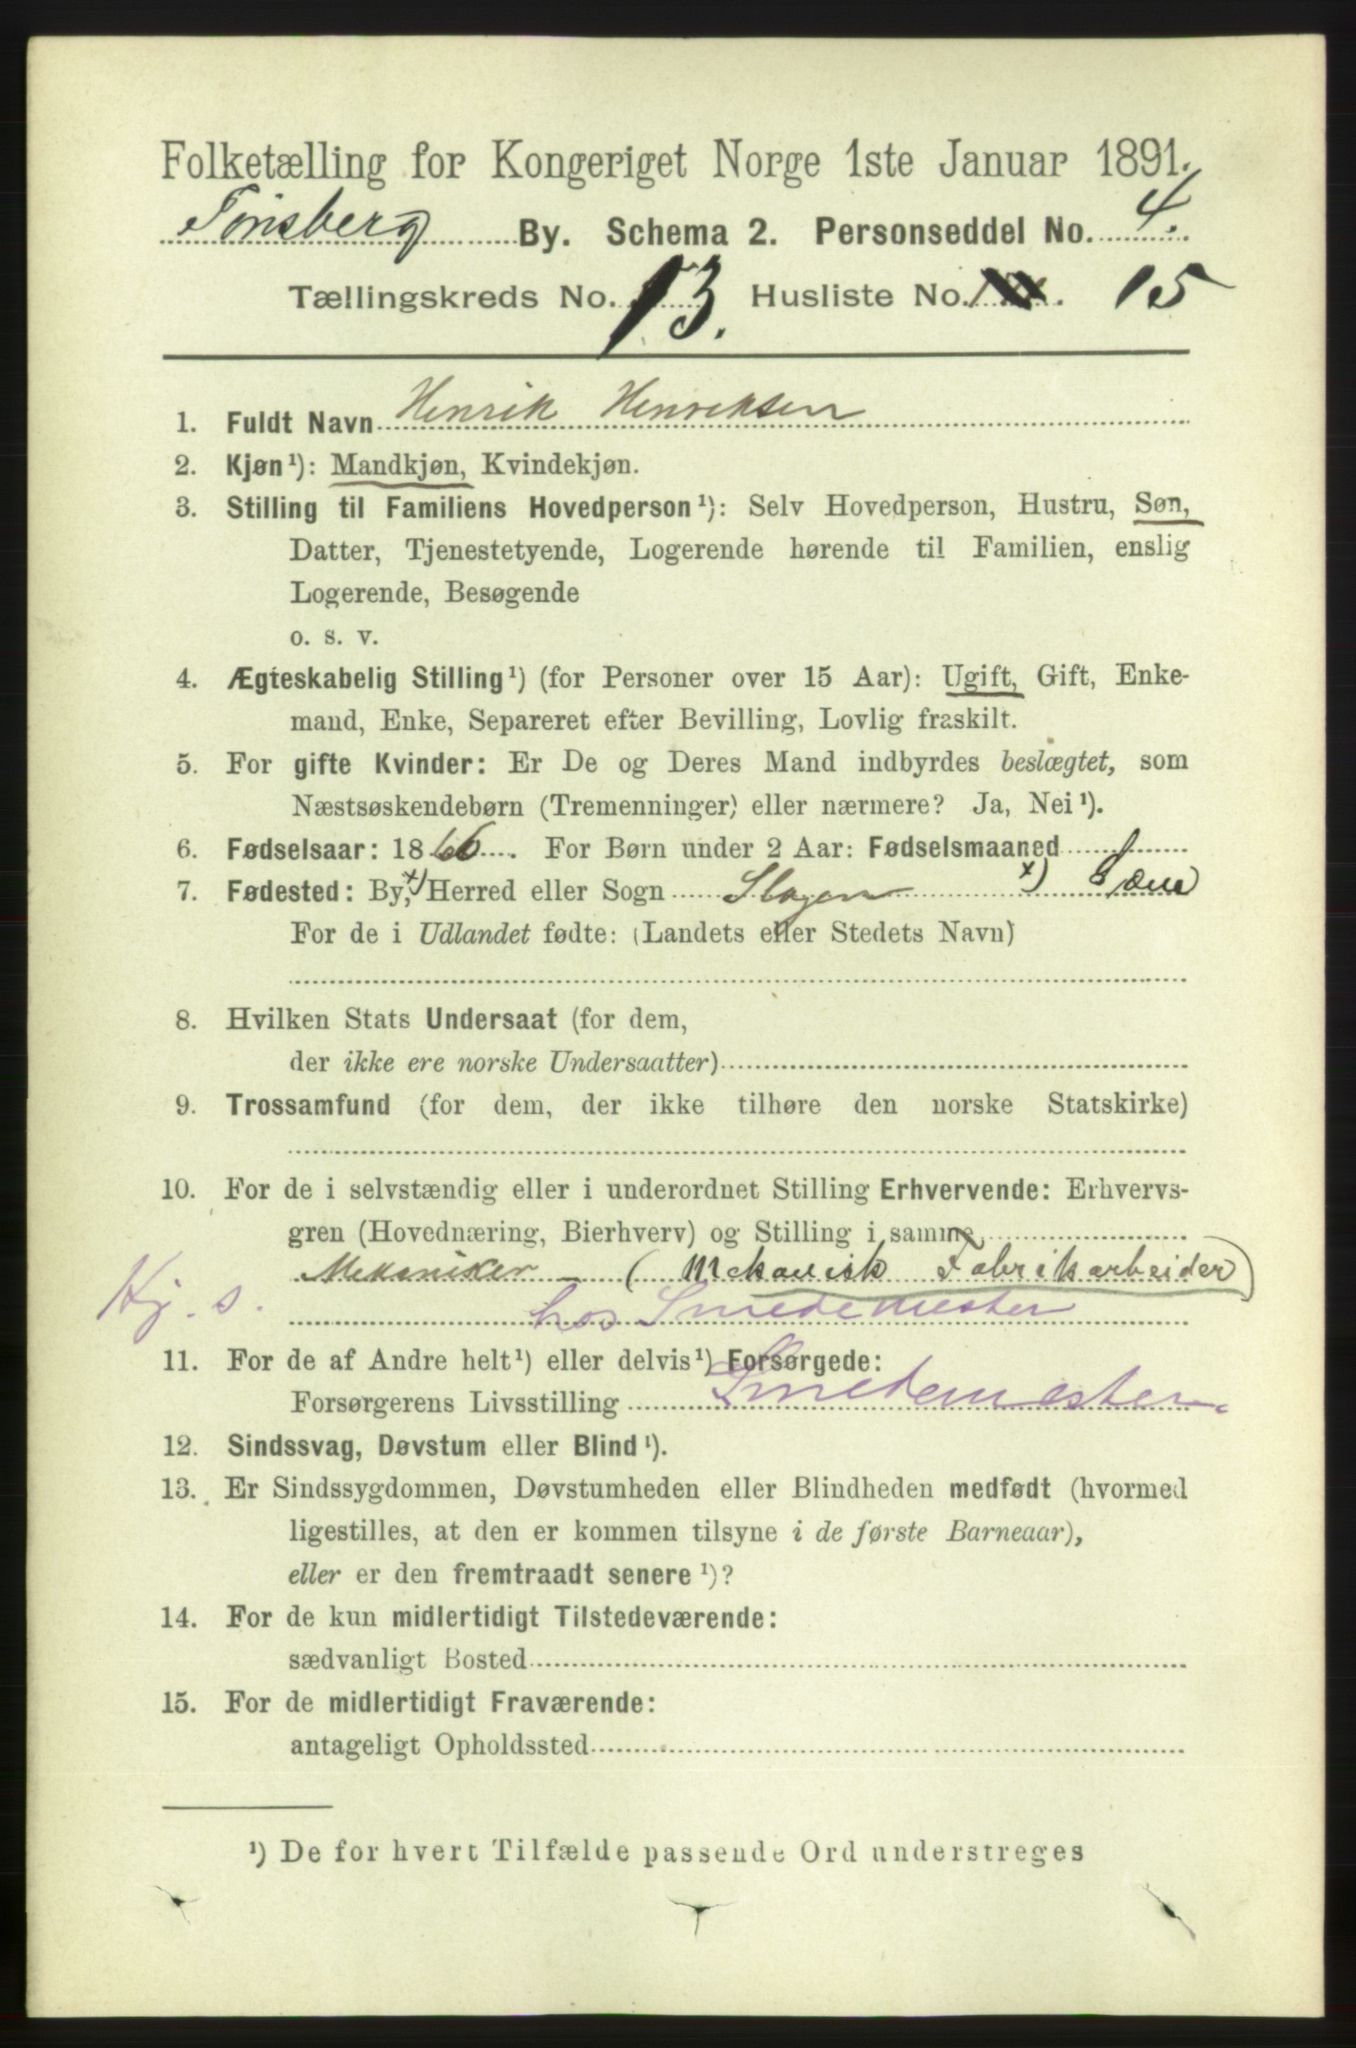 Folketælling for Kongeriget Norge 1ste Januar 1891.
Tønsberg By. Schema 2. Personseddel No. 4.
Tællingskreds No. 13. Husliste No. 15
1. Fuldt Navn Henrik Henriksen
2. Kjøn¹): Mandkjøn, Kvindekjøn.
3. Stilling til Familiens Hovedperson¹): Selv Hovedperson, Hustru, Søn,
Datter, Tjenestetyende, Logerende hørende til Familien, enslig
Logerende, Besøgende
o. s. v.
4. Ægteskabelig Stilling¹) (for Personer over 15 Aar): Ugift, Gift, Enke-
mand, Enke, Separeret efter Bevilling, Lovlig fraskilt.
5. For gifte Kvinder: Er De og Deres Mand indbyrdes beslægtet, som
Næstsøskendebørn (Tremenninger) eller nærmere? Ja, Nei¹).
6. Fødselsaar: 1866. For Børn under 2 Aar: Fødselsmaaned
7. Fødested: By, x) Herred eller Sogn Slagen x)
For de i Udlandet fødte: (Landets eller Stedets Navn)
8. Hvilken Stats Undersaat (for dem,
der ikke ere norske Undersaatter)
9. Trossamfund (for dem, der ikke tilhøre den norske Statskirke)
10. For de i selvstændig eller i underordnet Stilling Erhvervende: Erhvervs-
gren (Hovednæring, Bierhverv) og Stilling i samme
Mekaniker – (Mekanisk Fabrikarbeider)
Hj. s. hos Smedemester
11. For de af Andre helt¹) eller delvis¹) Forsørgede:
Forsørgerens Livsstilling Smedemester.
12. Sindssvag, Døvstum eller Blind¹).
13. Er Sindssygdommen, Døvstumheden eller Blindheden medfødt (hvormed
ligestilles, at den er kommen tilsyne i de første Barneaar),
eller er den fremtraadt senere¹)?
14. For de kun midlertidigt Tilstedeværende:
sædvanligt Bosted
15. For de midlertidigt Fraværende:
antageligt Opholdssted
¹) De for hvert Tilfælde passende Ord understreges